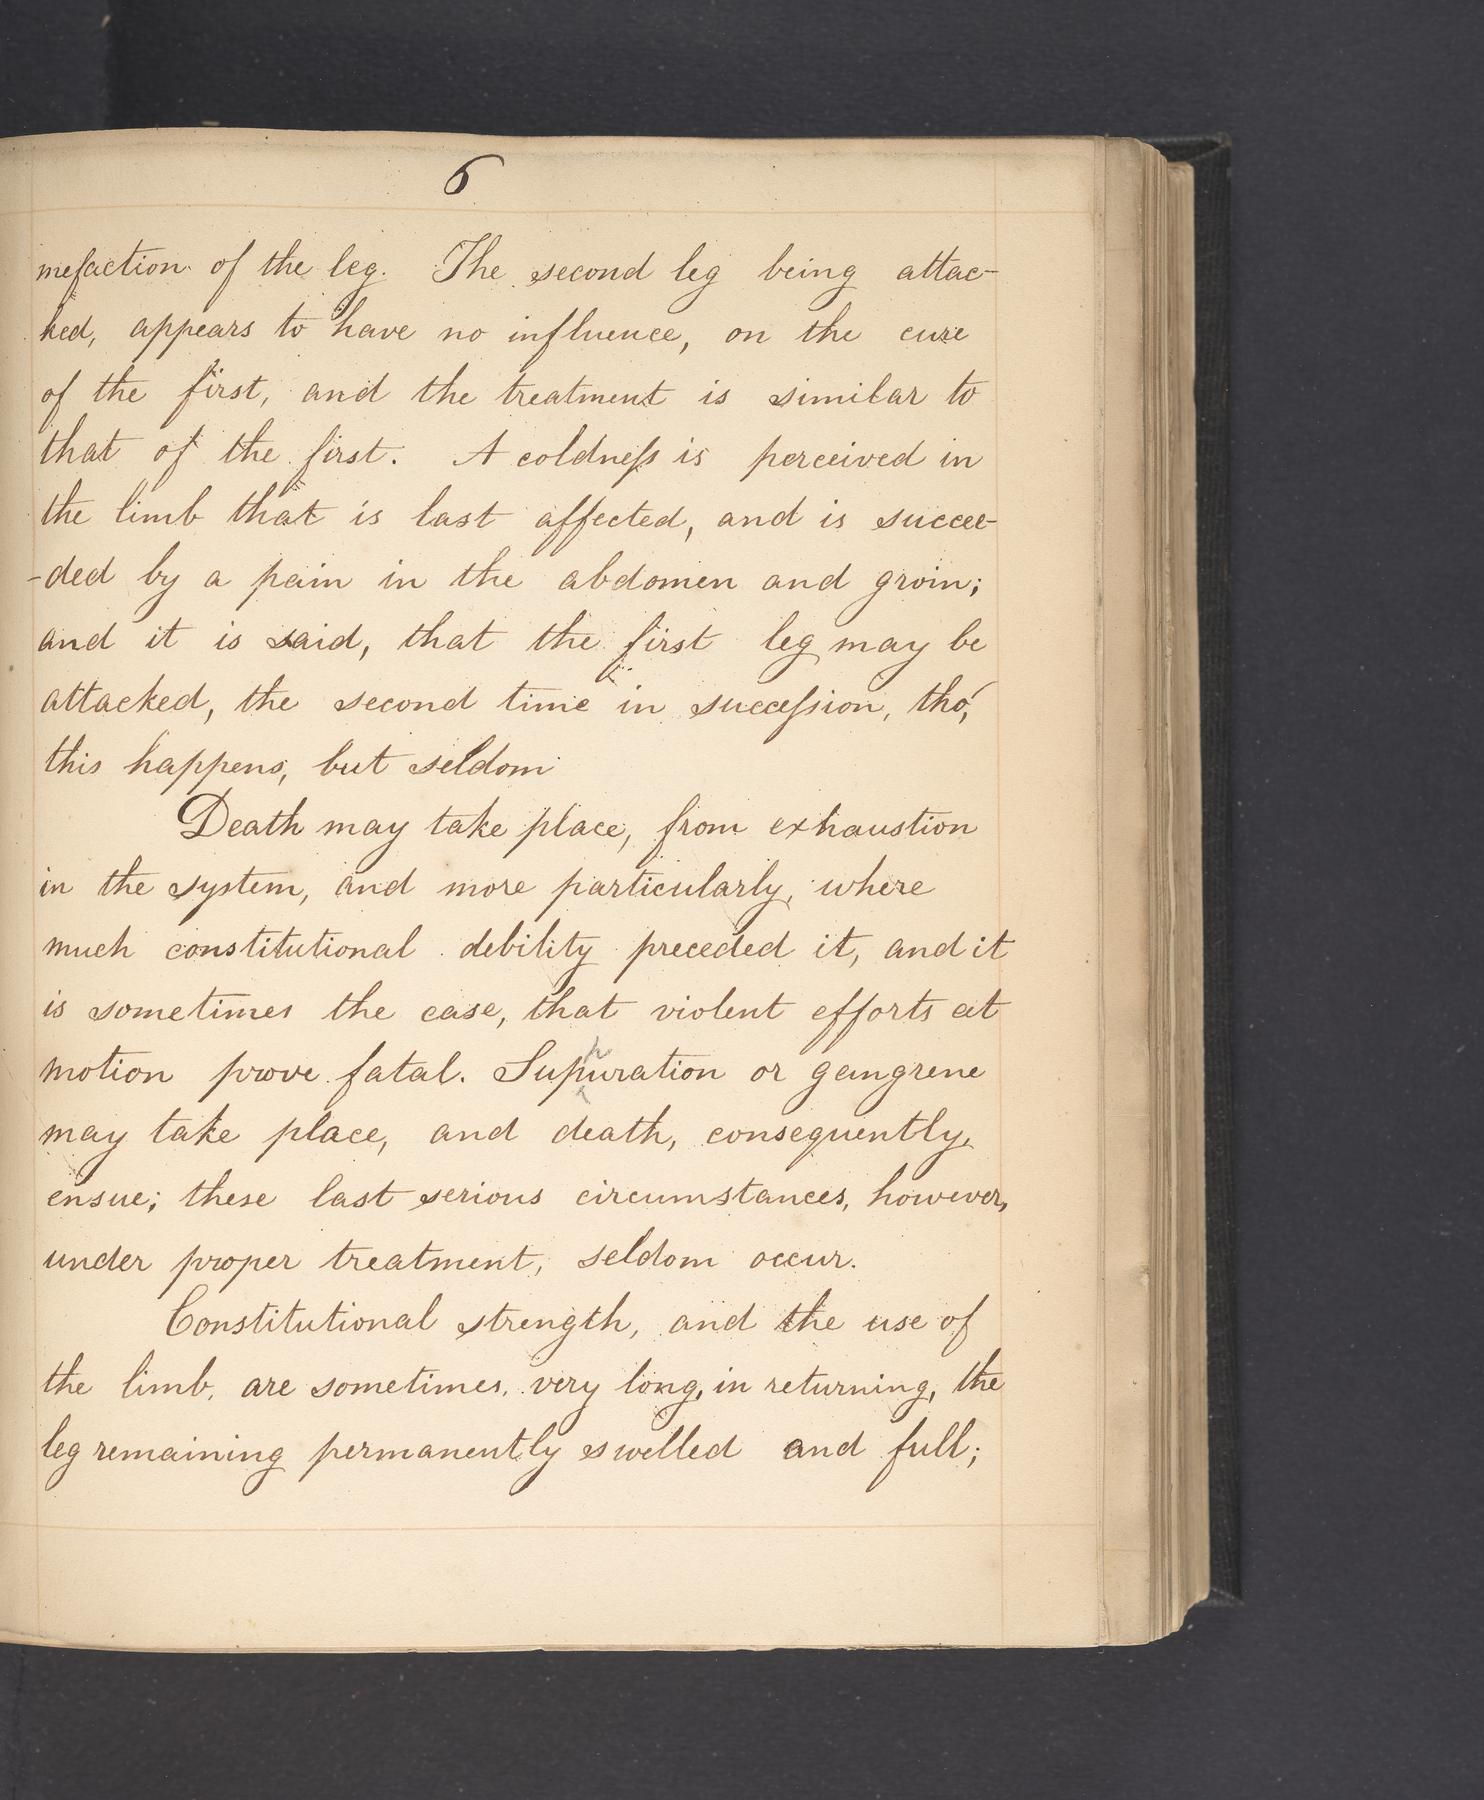 6
mefaction of the leg. The second leg being attac-
ked, appears to have no influence, on the cure
of the first, and the treatment is similar to
that of the first. A coldneſs is perceived in
the limb that is last affected, and is succee-
-ded by a pain in the abdomen and groin;
and it is said, that the first leg may be
attacked, the second time in succeſsion, tho',
this happens, but seldom
Death may take place, from exhaustion
in the system, and more particularly, where
much constitutional debility preceded it, and it
is sometimes the case, that violent efforts at
motion prove fatal. Suppuration or gangrene
may take place, and death, consequently,
ensue; these last serious circumstances, however,
under proper treatment, seldom occur.
Constitutional strength, and the use of
the limb, are sometimes, very long, in returning, the
leg remaining permanently swelled and full;